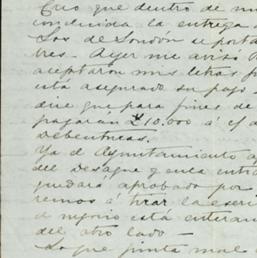 Creo que dentro de
conducida la entrega
Los de London se porta
tres. Ayer me avisó
aceptaron mis letras
está asegurado su pago
que que para fines de
pagarán £10.000 á c/ d
Debentures.
Ya el Ayuntamiento a
del Desague y en la entre
quedará aprobado por
remos á tirar la escri
el negocio está enteram
del otro lado —
Lo que pinta mal